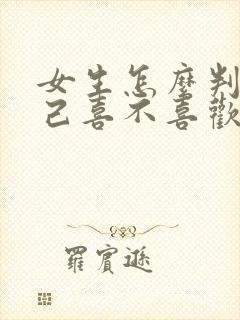 女生怎麼判
己喜不喜歡
羅賓遜